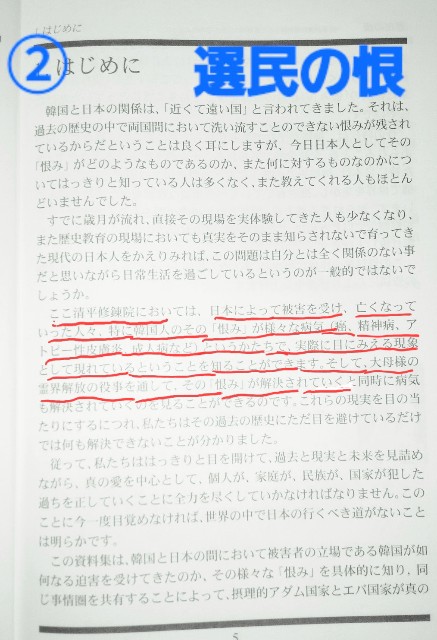 はじめに
② 選民の恨
はじめに
韓国と日本の関係は、「近くて遠い国」と言われてきました。それは、
過去の歴史の中で両国間において洗い流すことのできない恨みが残され
ているからだということは良く耳にしますが、今日日本人としてその
「恨み」がどのようなものであるのか、また何に対するものなのかにつ
いてはっきりと知っている人は多くなく、また教えてくれる人もほとん
どいませんでした。
すでに歳月が流れ、直接その現場を実体験してきた人も少なくなり、
また歴史教育の現場においても真実をそのまま知らされないで育ってき
た現代の日本人をかえりみれば、この問題は自分とは全く関係のない事
だと思いながら日常生活を過ごしているというのが一般的ではないで
しょうか。
ここ清平修錬院においては、日本によって被害を受け、亡くなって
いった人々、特に韓国人のその「恨み」が様々な病気（癌、精神病、ア
トピー性皮膚炎、成人病など）というかたちで、実際に目にみえる現象
として現れているということを知ることができます。そして、大母様の
霊界解放の役事を通して、その「恨み」が解決されていくと同時に病気
も解決されていくのを見ることができるのです。これらの現実を目の当
たりにするにつれ、私たちはその過去の歴史にただ目を避けているだけ
では何も解決できないことが分かりました。
従って、私たちははっきりと目を開けて、過去と現実と未来を見詰め
ながら、真の愛を中心として、個人が、家庭が、民族が、国家が犯した
過ちを正していくことに全力を尽くしていかなければなりません。この
ことに今一度目覚めなければ、世界の中で日本の行くべき道がないこと
は明らかです。
この資料集は、韓国と日本の間において被害者の立場である韓国が如
何なる迫害を受けてきたのか、その様々な「恨み」を具体的に知り、同
じ事情圏を共有することによって、摂理的アダム国家とエバ国家が真の
5